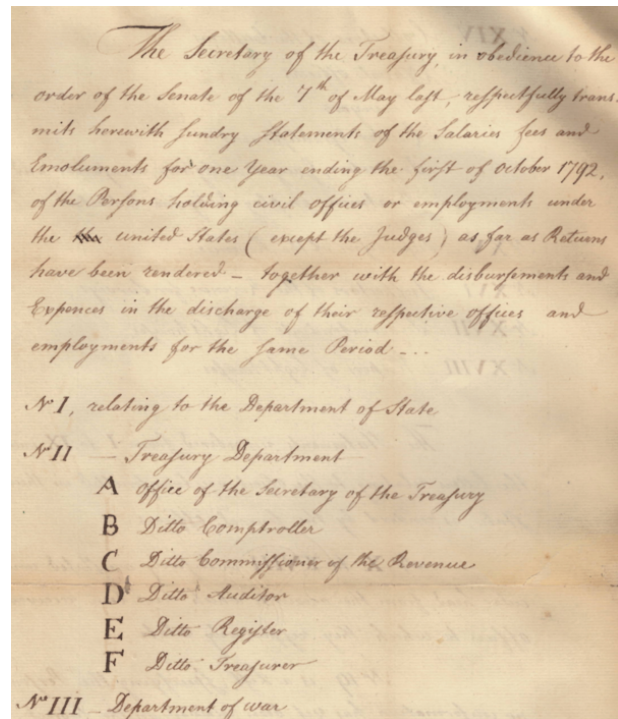 The Secretary of the Treasury, in obedience to the
order of the Senate of the 7th of May last, respectfully trans
mits herewith sundry Statements of the Salaries fees and
Emoluments for one Year ending the first of October 1792,
of the Persons holding civil offices or employments under
the united States (except the Judges) as far as Returns
have been rendered – together with the disbursements and
Expences in the discharge of their respective offices and
employments for the same Period – ..
No I, relating to the Department of State
No II — Treasury Department
A office of the Secretary of the Treasury
B Ditto Comptroller
C Ditto Commissioner of the Revenue
D Ditto Auditor
E Ditto Register
F Ditto Treasurer
No III – Department of war